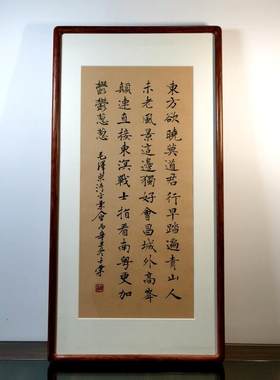 東方欲曉莫道君行早踏遍青山人
未老風景這邊獨好會昌城外高峯
顛連直接東溟戰士指看南粵更加
鬱鬱蔥蔥 毛澤東清平樂會昌